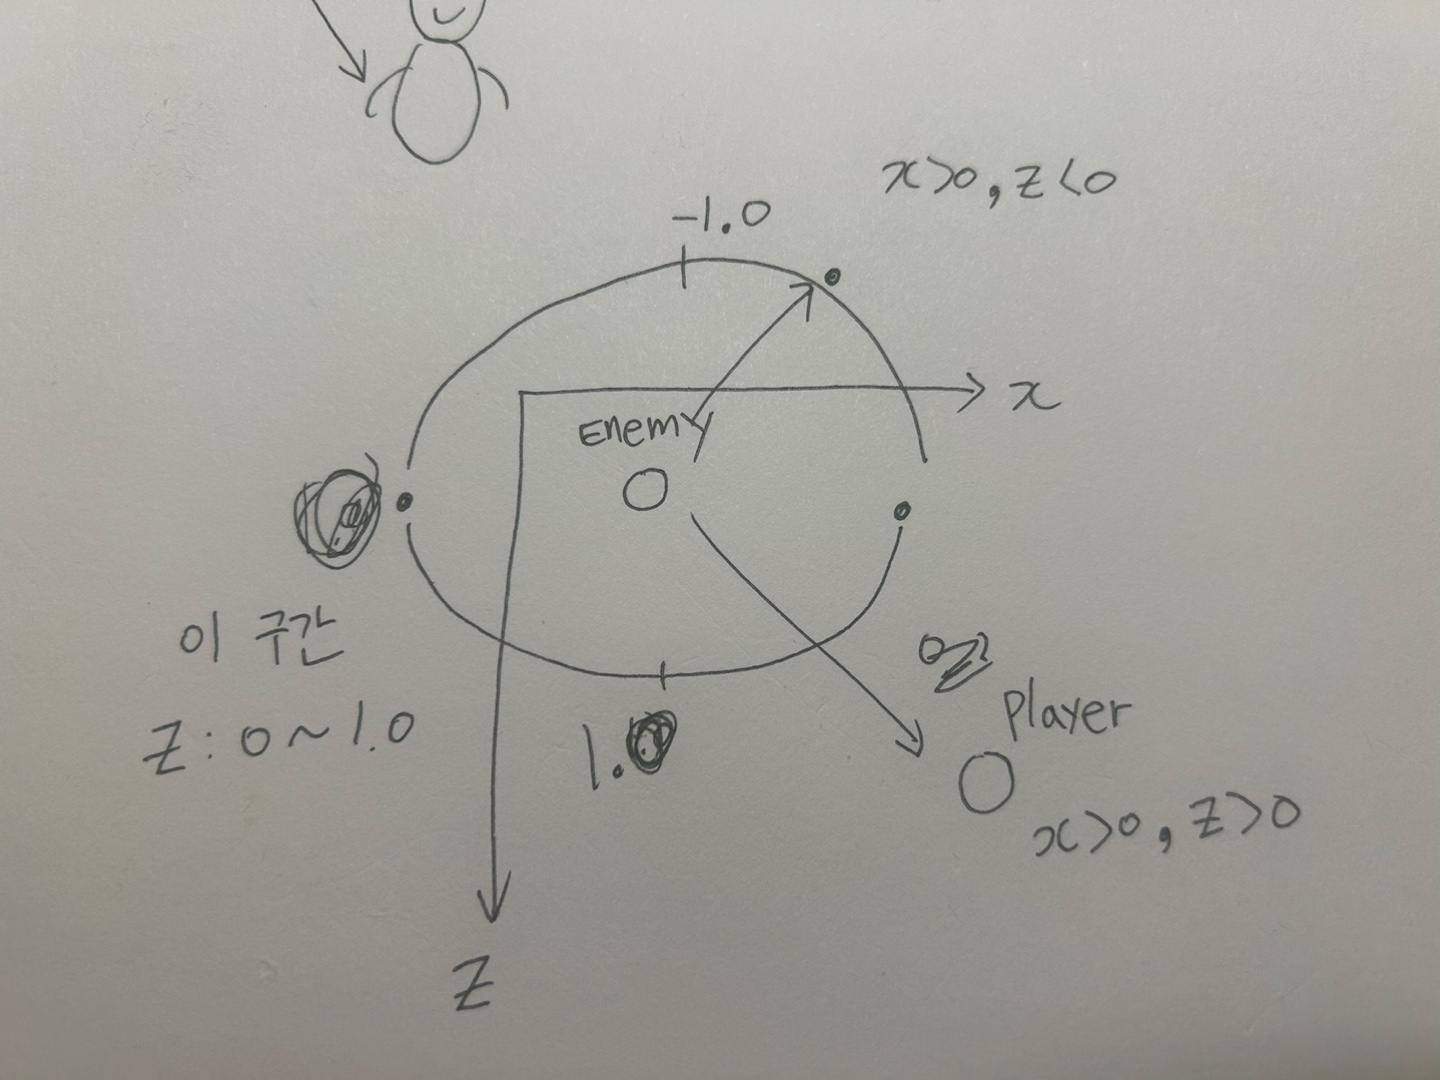 x>0, z<0
-1.0
x
Enemy
이 구간
z: 0~1.0
1.0
Player
x>0, z>0
z